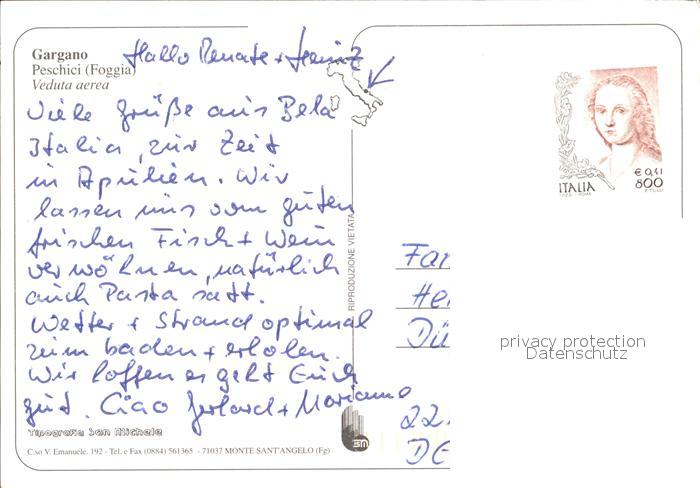 Gargano
Peschici (Foggia)
Veduta aerea
Hallo Renate + Heinz
Viele Grüße aus Bela
Italia, zur Zeit
in Apulien. Wir
lassen uns vom guten
frischen Fisch + Wein
verwöhnen, natürlich
auch Pasta satt.
Wetter + Strand optimal
zum baden + erholen.
Wir hoffen es geht Euch
gut. Ciao Gerhard + Marianne
Tipografia San Michele
C.so V. Emanuele, 192 - Tel. e Fax (0884) 561365 - 71037 MONTE SANT'ANGELO (Fg)
RIPRODUZIONE VIETATA
ITALIA
€ 0,41
800
Fam
He
Dü
22.
DE
privacy protection
Datenschutz